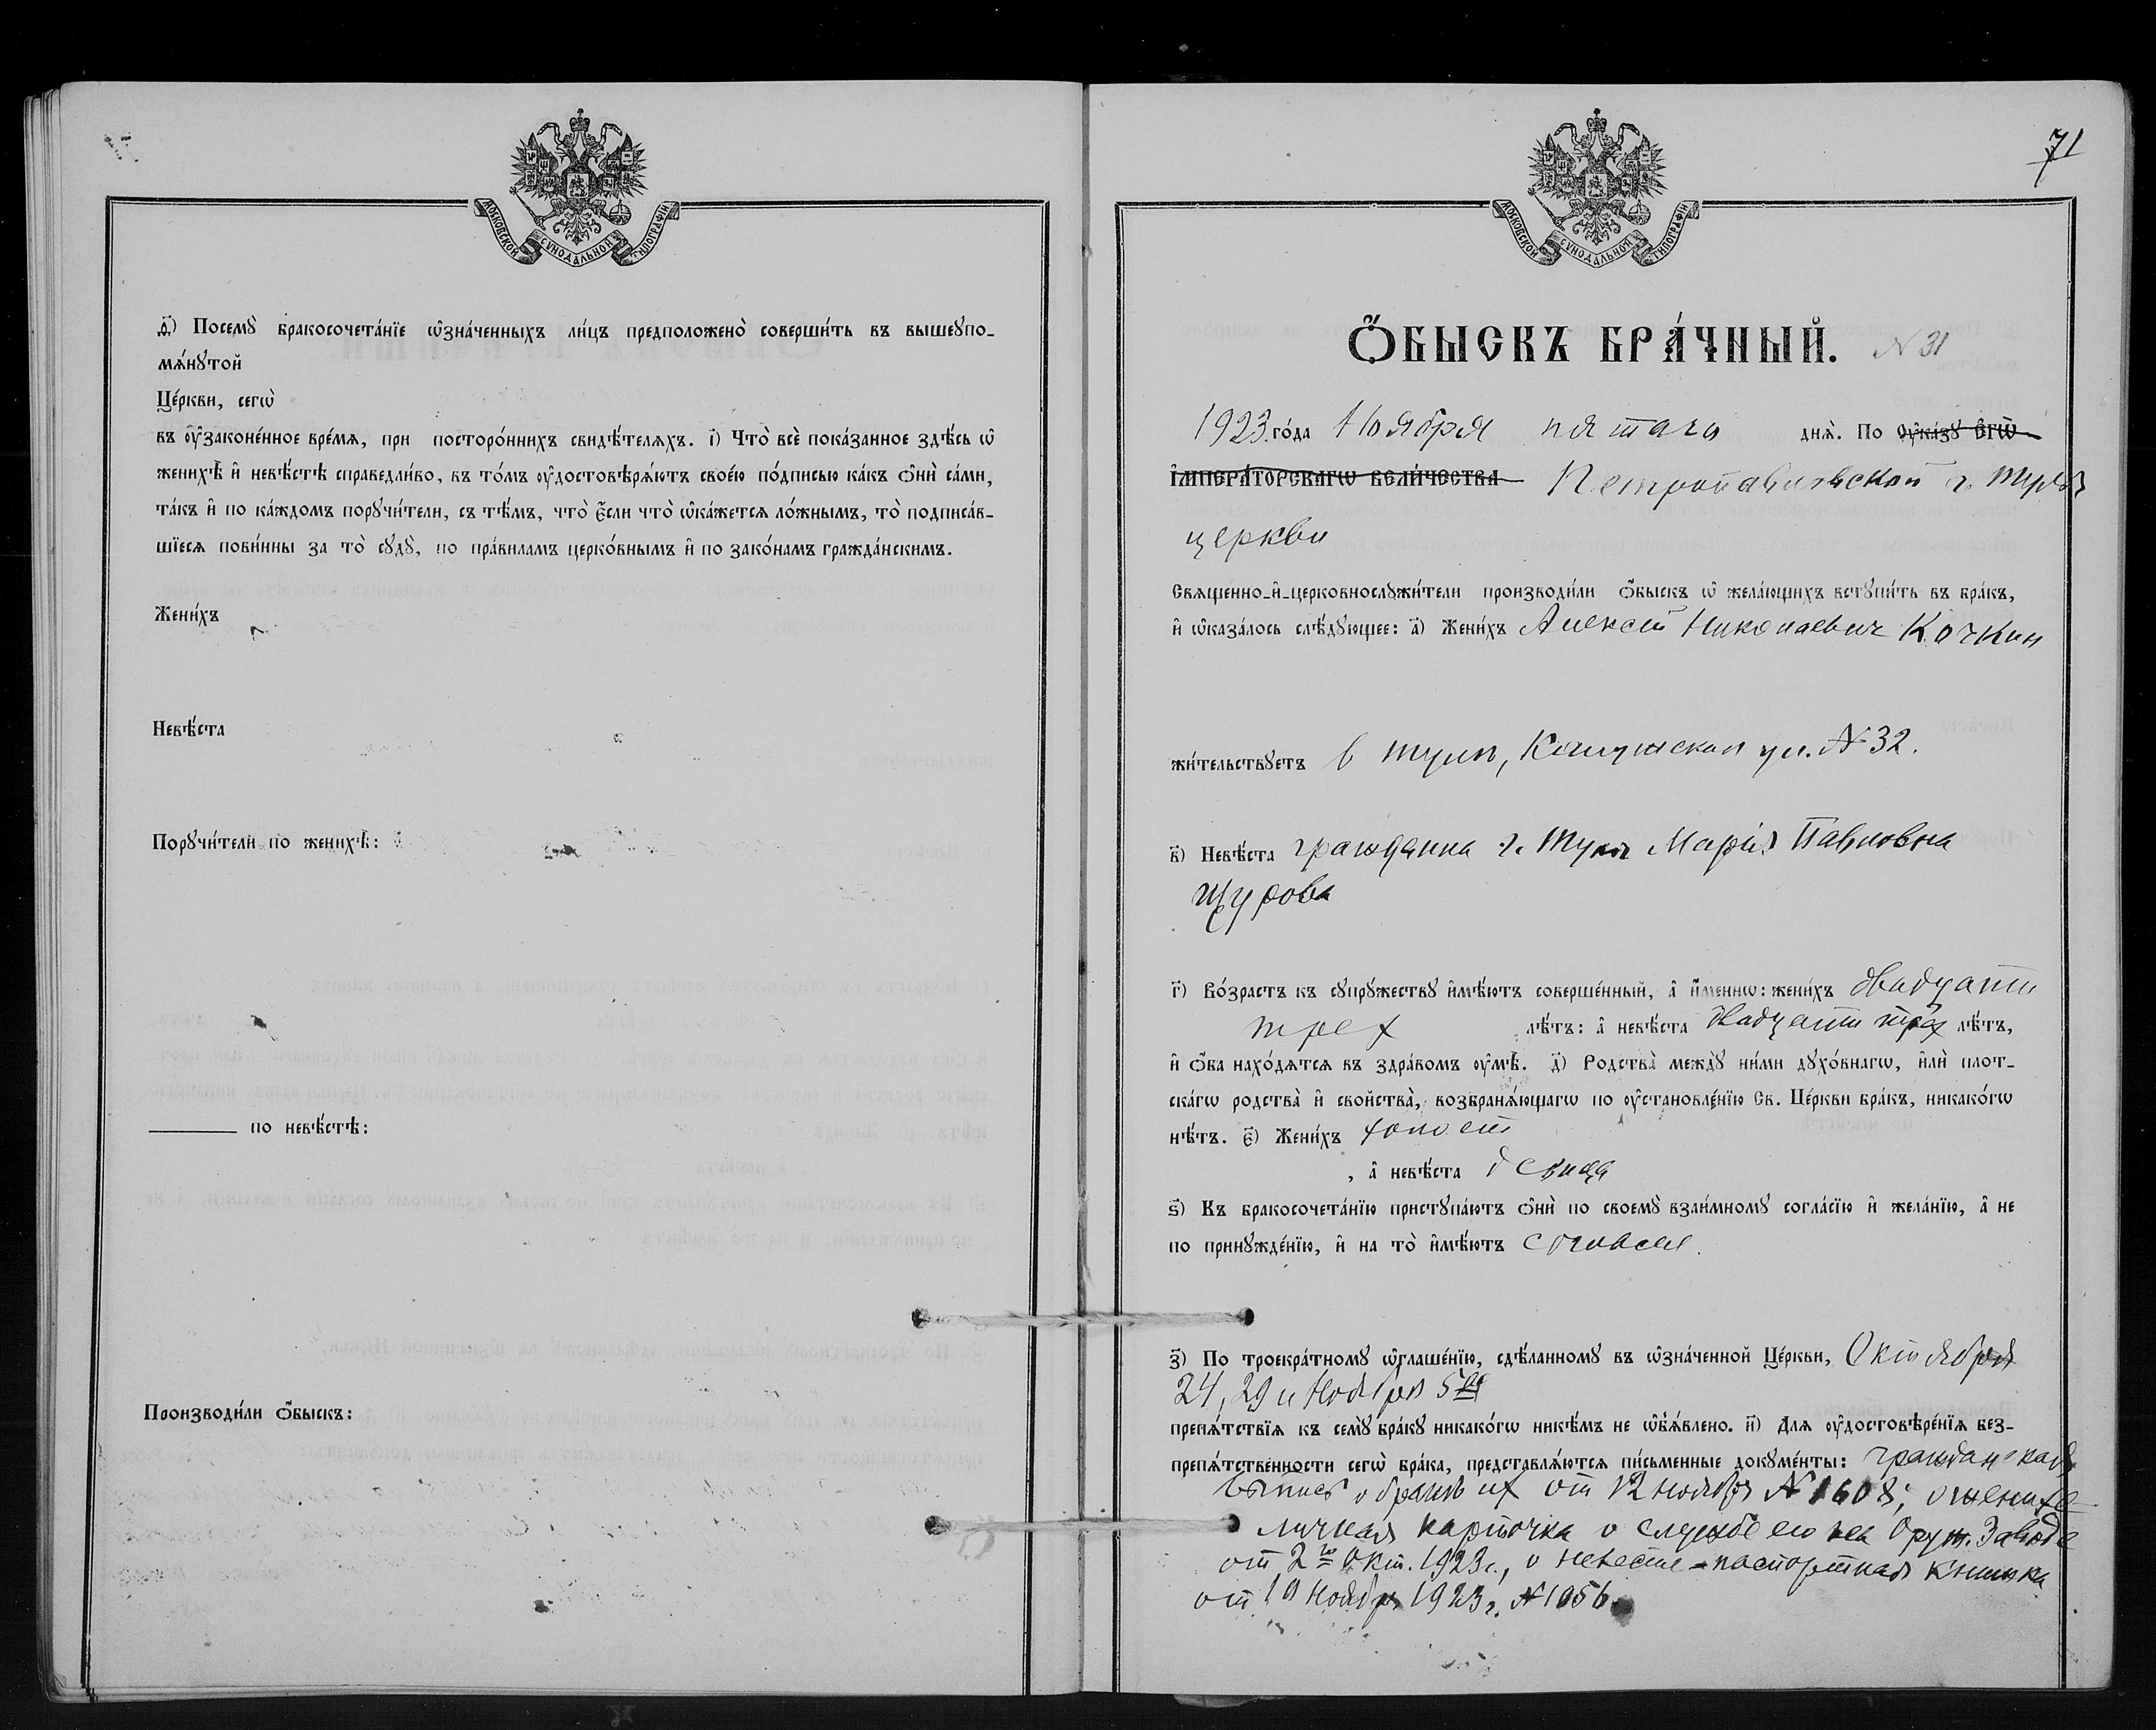 МОСКОВСКОЙ СѴНОДАЛЬНОЙ ТИПОГРАФІИ
ѳ҃) Посемꙋ̀ бракосочета́нїе ѡ҆зна́ченныхъ ли́цъ предположено̀ соверши́ть въ вышеꙋпо-
мѧ́нꙋтой
Це́ркви, сегѡ̀
въ ᲂу҆законе́нное вре́мѧ, при посторо́ннихъ свидѣ́телѧхъ. і҃) Что̀ всѐ пока́занное здѣ́сь ѡ҆
женихѣ̀ и҆ невѣ́стѣ справедли́во, въ то́мъ ᲂу҆достовѣрѧ́ютъ свое́ю по́дписью ка́къ ѻ҆нѝ са́ми,
та́къ и҆ по ка́ждомъ порꙋчи́тели, съ тѣ́мъ, что̀ є҆́сли что̀ ѡ҆ка́жетсѧ ло́жнымъ, то̀ подписа́в-
шїесѧ пови́нны за то̀ сꙋдꙋ̀, по пра́виламъ церко́внымъ и҆ по зако́намъ гражда́нскимъ.
Жени́хъ
Невѣ́ста
Порꙋчи́тели по женихѣ̀:
по невѣ́стѣ:
Производи́ли ѻ҆́быскъ:
71
МОСКОВСКОЙ СѴНОДАЛЬНОЙ ТИПОГРАФІИ
Ѻ҆́БЫСКЪ БРА́ЧНЫЙ. N 31
1923 го́да Ноября пятаго днѧ̀. По ᲂу҆ка́зꙋ Є҆гѡ̀
І҆мпера́торскагѡ вели́чества Петропавловской г. Тулы
церкви
Свѧщенно-и҆-церковнослꙋжи́тели производи́ли ѻ҆́быскъ ѡ҆ жела́ющихъ встꙋпи́ть въ бра́къ,
и҆ ѡ҆каза́лось слѣ́дꙋющее: а҃) Жени́хъ Алексей Николаевич Кочкин
жи́тельствꙋетъ в Туле, Калужская ул. № 32.
в҃) Невѣ́ста гражданка г. Тулы Мария Павловна
Щурова
г҃) Во́зрастъ къ сꙋпрꙋ́жествꙋ и҆мѣ́ютъ соверше́нный, а҆ и҆́меннѡ: жени́хъ двадцати
трех лѣ́тъ: а҆ невѣ́ста двадцати трех лѣ́тъ,
и҆ ѻ҆́ба нахо́дѧтсѧ въ здра́вомъ ᲂу҆мѣ̀. д҃) Родства̀ междꙋ̀ ни́ми дꙋхо́внагѡ, и҆лѝ плот-
ска́гѡ родства̀ и҆ свойства̀, возбранѧ́ющагѡ по ᲂу҆становле́нїю Св. Це́ркви бра́къ, никако́гѡ
нѣ́тъ. є҃) Жени́хъ холост
, а҆ невѣ́ста девица
ѕ҃) Къ бракосочета́нїю пристꙋпа́ютъ ѻ҆нѝ по своемꙋ̀ взаи́мномꙋ согла́сїю и҆ жела́нїю, а҆ не
по принꙋжде́нїю, и҆ на то̀ и҆мѣ́ютъ согласие.
з҃) По троекра́тномꙋ ѡ҆глаше́нїю, сдѣ́ланномꙋ въ ѡ҆зна́ченной Це́ркви, Октября
24, 29 и Ноября 5го
препѧ́тствїѧ къ семꙋ̀ бра́кꙋ никако́гѡ никѣ́мъ не ѡ҆бъѧ́влено. и҃) Для ᲂу҆достовѣре́нїѧ без-
препѧ́тственности сегѡ̀ бра́ка, представлѧ́ютсѧ пи́сьменные докꙋме́нты: гражданская
выпись о браке их от 12 ноября № 1608; о женихе
личная карточка о службе его на Оруж. Заводе
от 2го Окт. 1923 г., о невесте - паспортная книжка
от 10 Ноября 1923 г. № 1056.